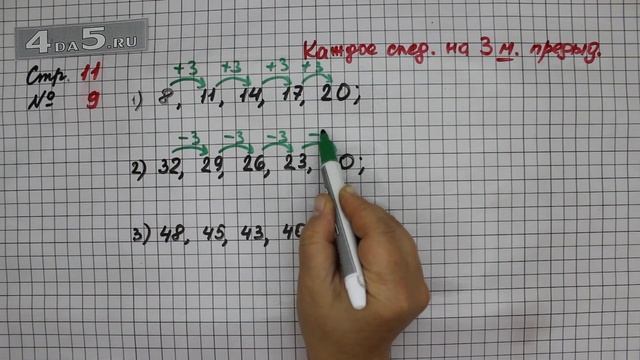 4DA5.RU
Каждое след. на 3 м. предыд.
Стр. 11
№ 9
+3 +3 +3 +3
1) 8, 11, 14, 17, 20;
-3 -3 -3 -
2) 32, 29, 26, 23, 0;
3) 48, 45, 43, 40